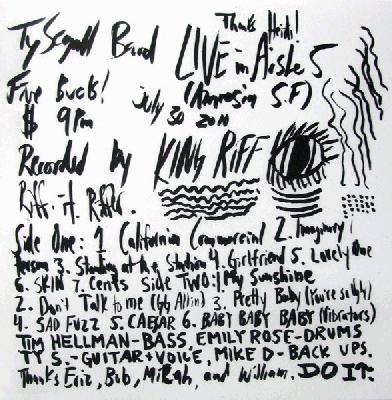 Thanks Heidi!
Ty Segall Band LIVE in Aisle 5
Five Bucks! (Amnesia S.F)
$ 9pm July 30 2010
Recorded by KING RIFF
Riff.
Side One: 1 California Commercial 2. Imaginary
Person 3. Standing at the Station 4. Girlfriend 5. Lovely One
6. SKIN 7. Cents Side TWO: 1 My Sunshine
2. Don't Talk to me (GG Allin) 3. Pretty Baby (You're so Ugly)
4. SAD FUZZ 5. CAESAR 6. BABY BABY BABY (Vibrators)
TIM HELLMAN-BASS, EMILY ROSE-DRUMS
TY S.-GUITAR+VOICE, MIKE D-BACK UPS.
Thanks Eric, Bob, Mikah, and William. DO IT.